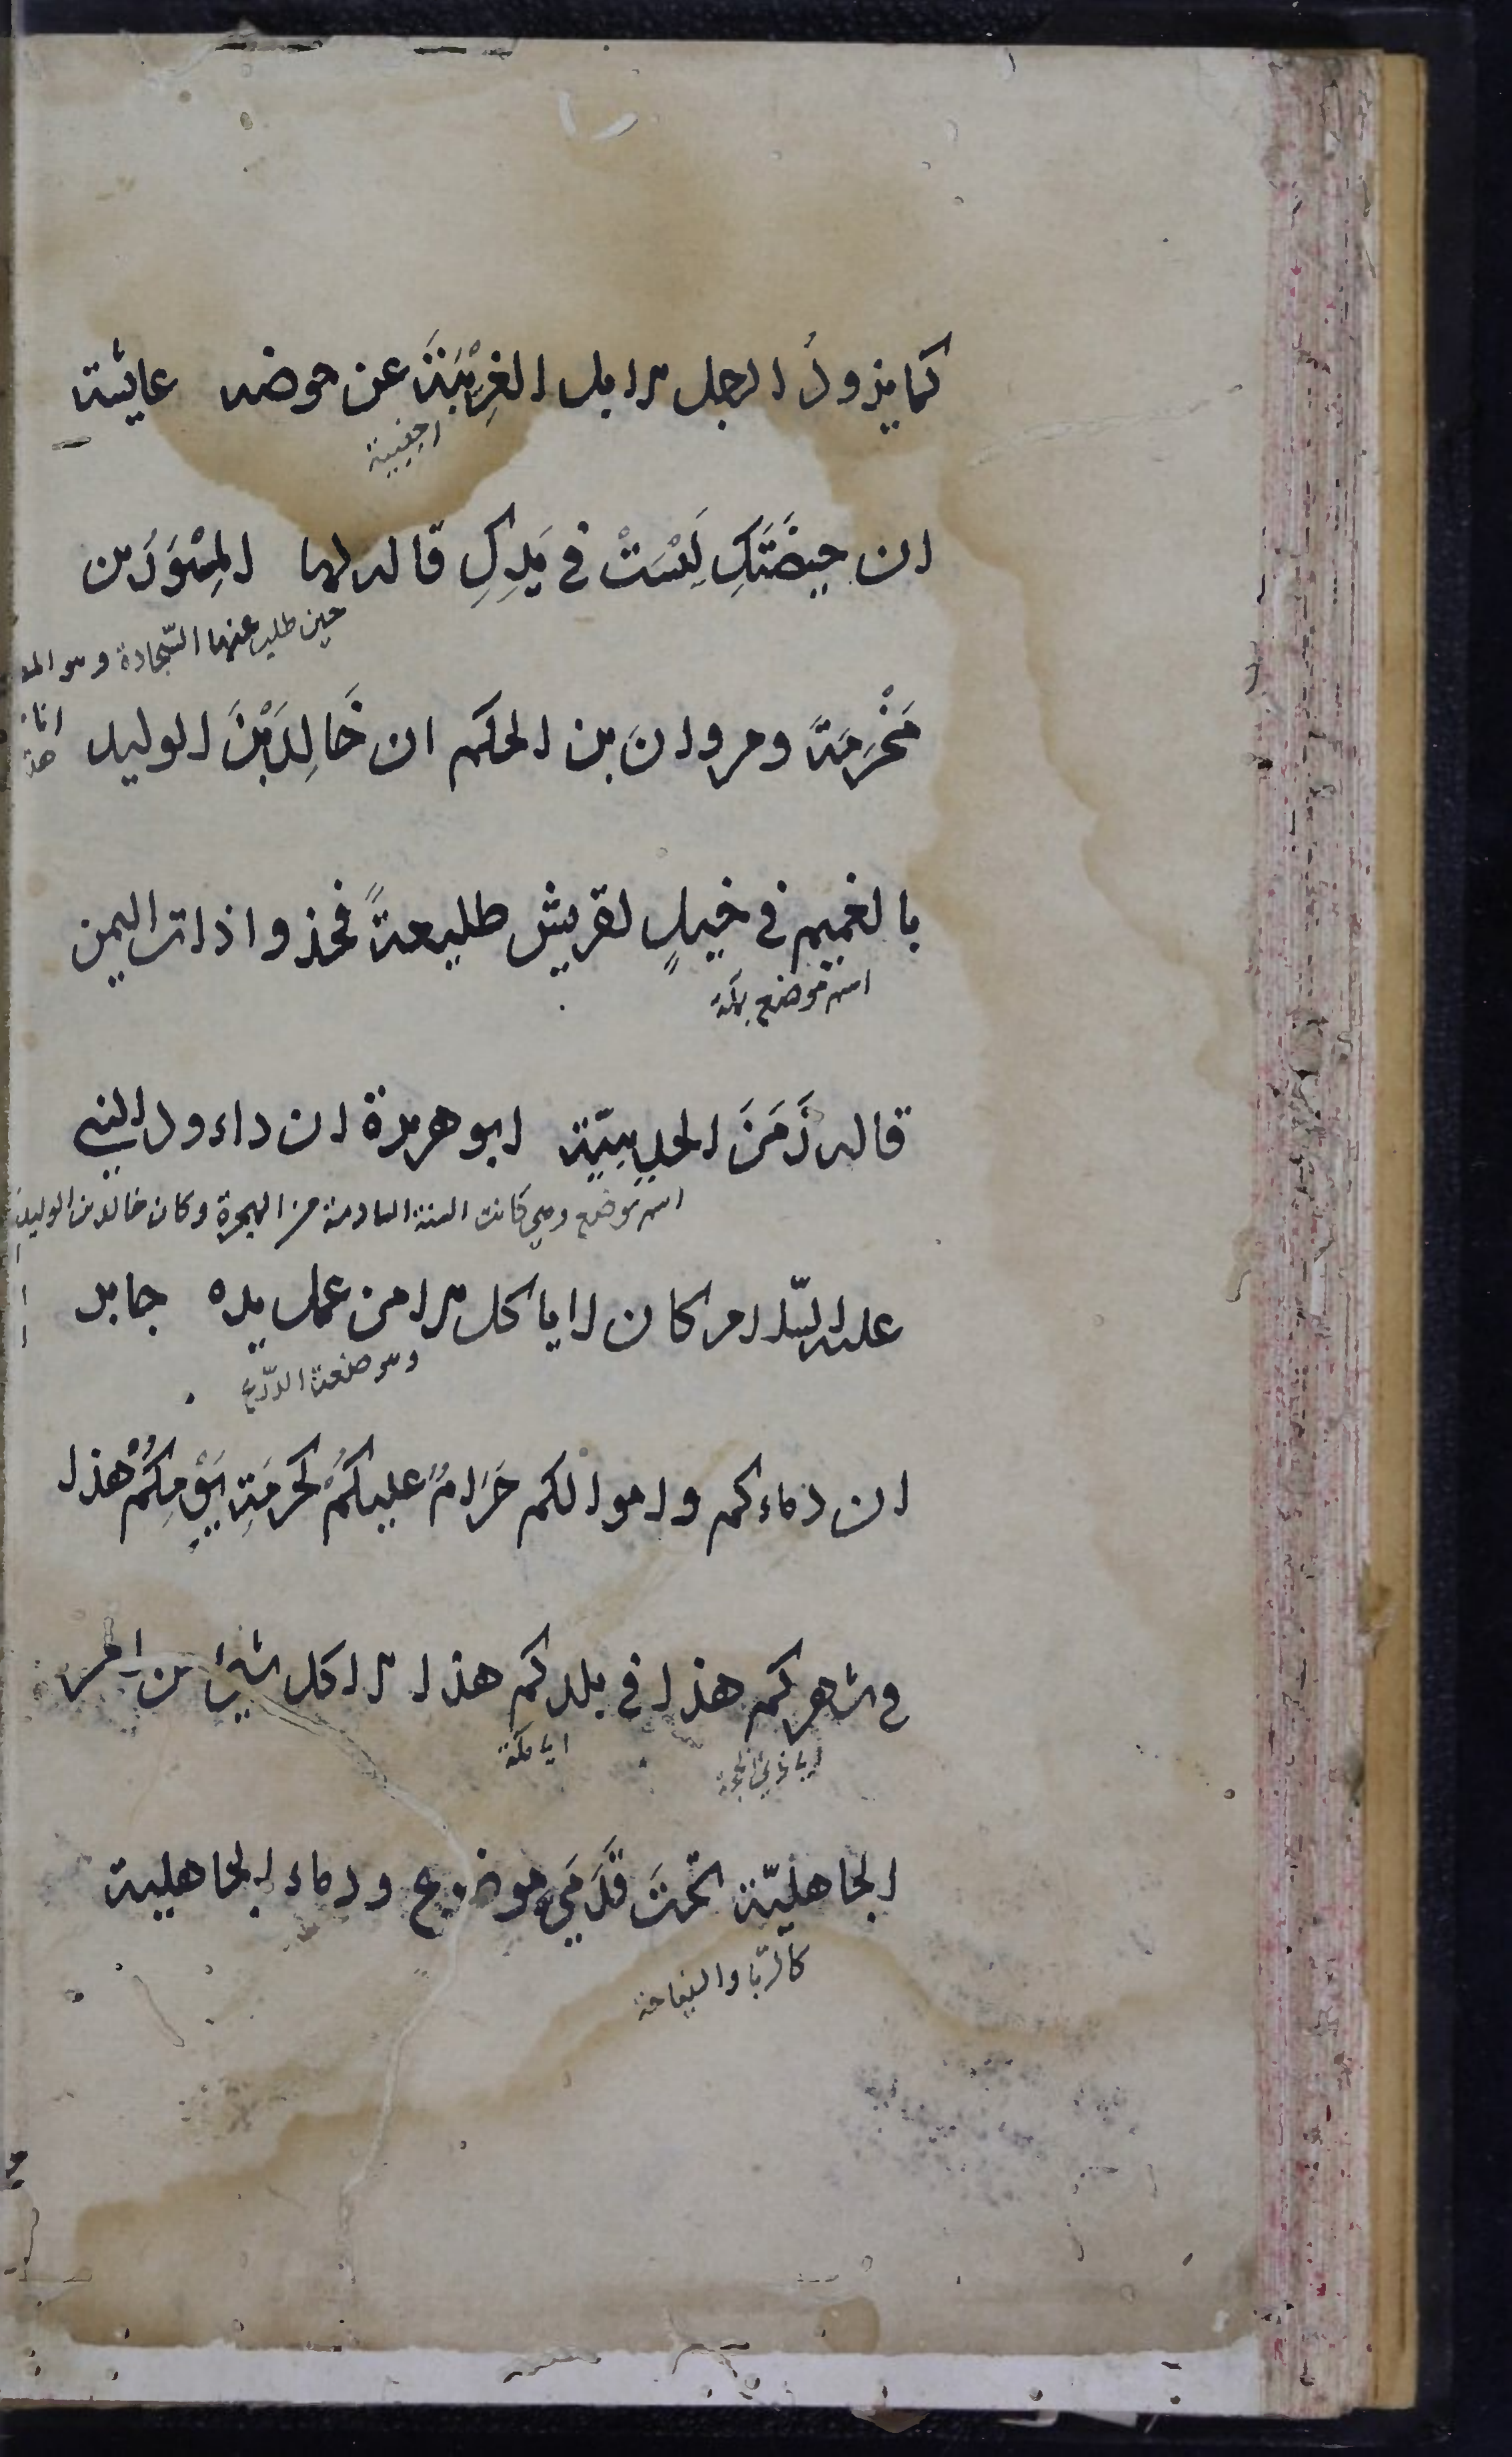 كما يذود الرجل الابل الغَرِيْبَةَ عن حوضه عايشة
اجنبية
ان حيضَتَكِ لَيْسَتْ في يَدِكِ قاله لها المِسْوَرَ بن
حين طلب عنها السّجادة وهو
مَخْرَمَةَ ومروانَ بن الحكم ان خَالِدَ بْنَ الوليد
بالغميم في خيلٍ لقريش طليعةً فخذوا ذات اليمين
اسم موضع بمكة
قاله زَمَنَ الحديبيّة ابو هريرة ان داءود النبي
اسم موضع وهي كانت السنة السادسة من الهجرة وكان خالد بن الوليد
عليه السّلام كان لا ياكل الا من عمل يده جابر
وهو صنعة الدّرع
ان دماءكم واموالكم حَرَامٌ عليكُمْ كحرمَةِ يَوْمِكُمْ هذا
في شهركم هذا في بلدكم هذا الا كل شيئ من امر
اي ذي الحجة
اي مكة
الجاهليّة تحْتَ قَدَمَيَّ موضوع ودماء الجاهلية
كالرّبا والنياحة